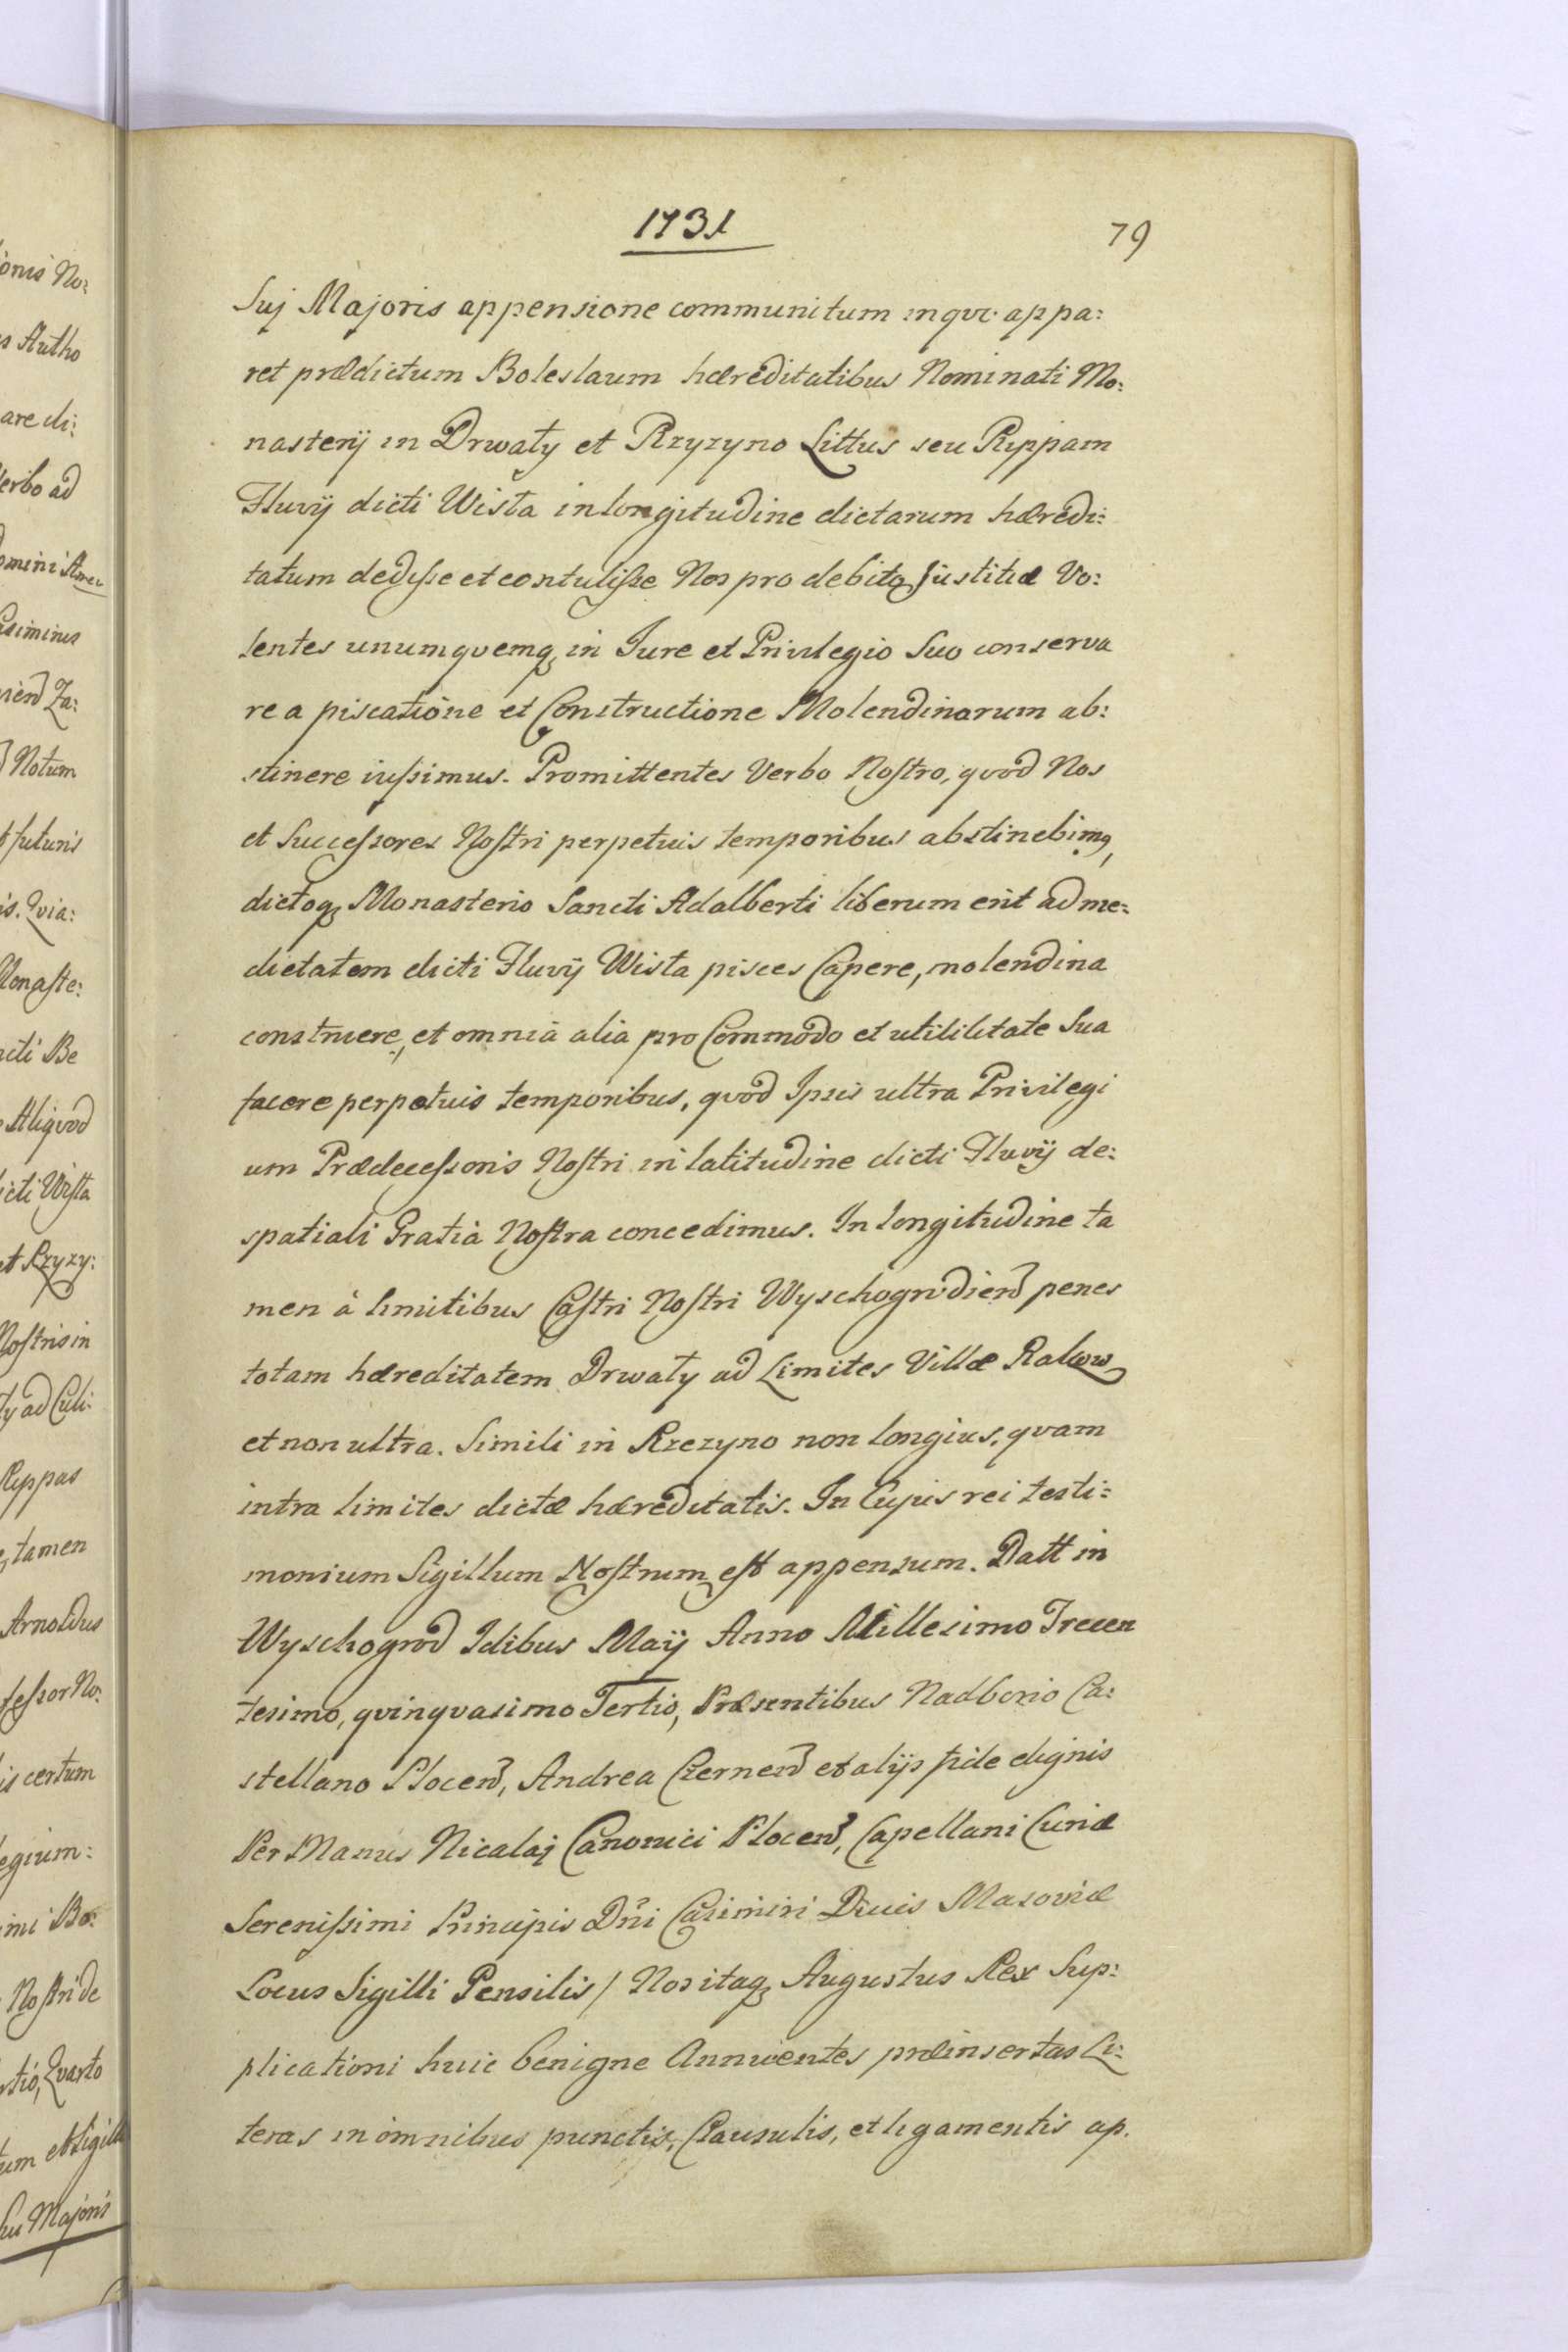 1731
79
Suj Majoris appensione communitum inqve appa:
ret prædictum Boleslaum hæreditatibus Nominati Mo:
nasterij in Drwały et Rzyzyno Littus seu Ryppam
Fluvij dicti Wisła in longitudine dictarum hæredi:
tatum dedisse et contulisse Nos pro debito Justitiæ Vo:
lentes unumqvemq in Jure et Privilegio Suo conserva
re a piscatione et Constructione Molendinorum ab:
stinere iussimus. Promittentes Verbo Nostro, qvod Nos
et Successores Nostri perpetuis temporibus abstinebimq,
dictoq Monasterio Sancti Adalberti liberum erit ad me:
dietatem dicti Fluvij Wisła pisces Capere, molendina
construere, et omnia alia pro Commodo et utililitate Sua
facere perpetuis temporibus, qvod Ipsis ultra Privilegi
um Prædecessoris Nostri in latitudine dicti Fluvij de:
spatiali Gratia Nostra concedimus. In longitudine ta
men à limitibus Castri Nostri Wyschogrodien penes
totam hæreditatem Drwały ad Limites Villæ Rakow
et non ultra. Simili in Rzezyno non longius, qvam
intra limites dictæ hæreditatis. In Cujus rei testi:
monium Sigillum Nostrum est appensum. Datt in
Wyschogrod Idibus Maij Anno Millesimo Trecen
tesimo, qvinqvasimo Tertio, Præsentibus Nadborio Ca:
stellano Plocen, Andrea Czernen et alijs fide dignis
Per Manus Nicalaj Canonici Plocen, Capellani Curiæ
Serenissimi Principis Dni Casimiri Ducis Masoviæ
Locus Sigilli Pensilis / Nos itaq Augustus Rex Sup:
plicationi huic benigne Annuentes præinsertas Li:
teras in omnibus punctis, Clausulis, et ligamentis ap.